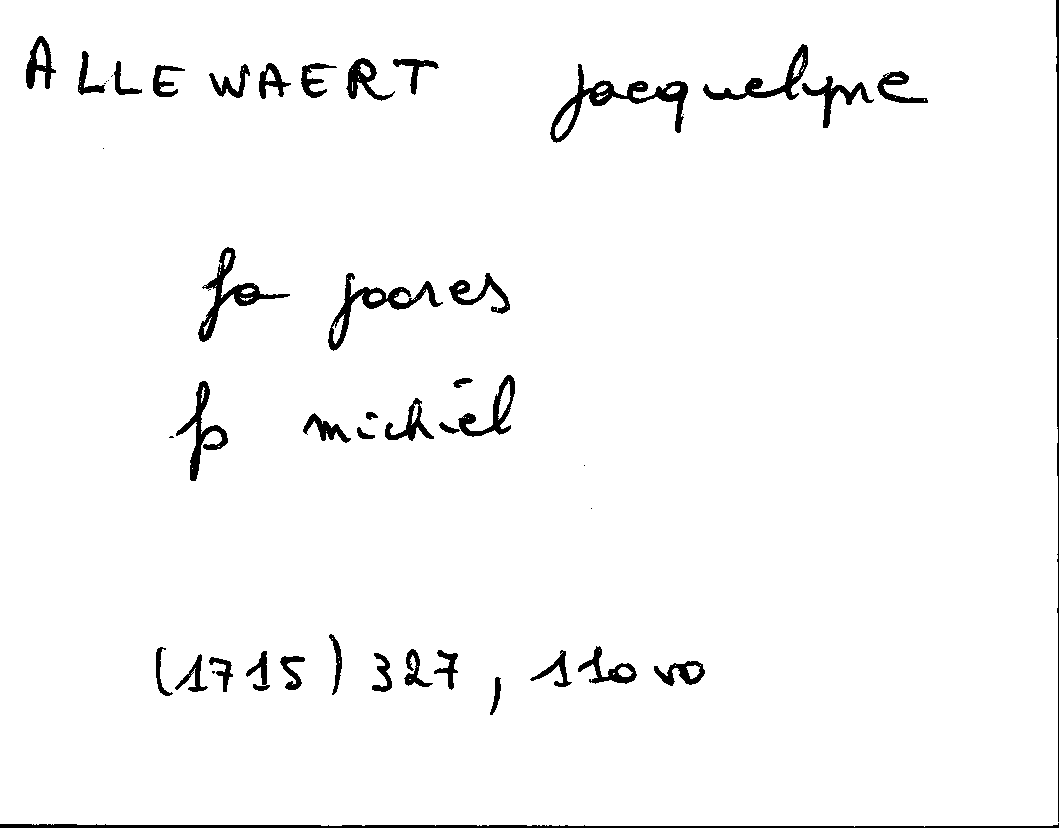 ALLEWAERT Jacquelyne
fa Joores
p michiel
(1715) 327, 110 vo